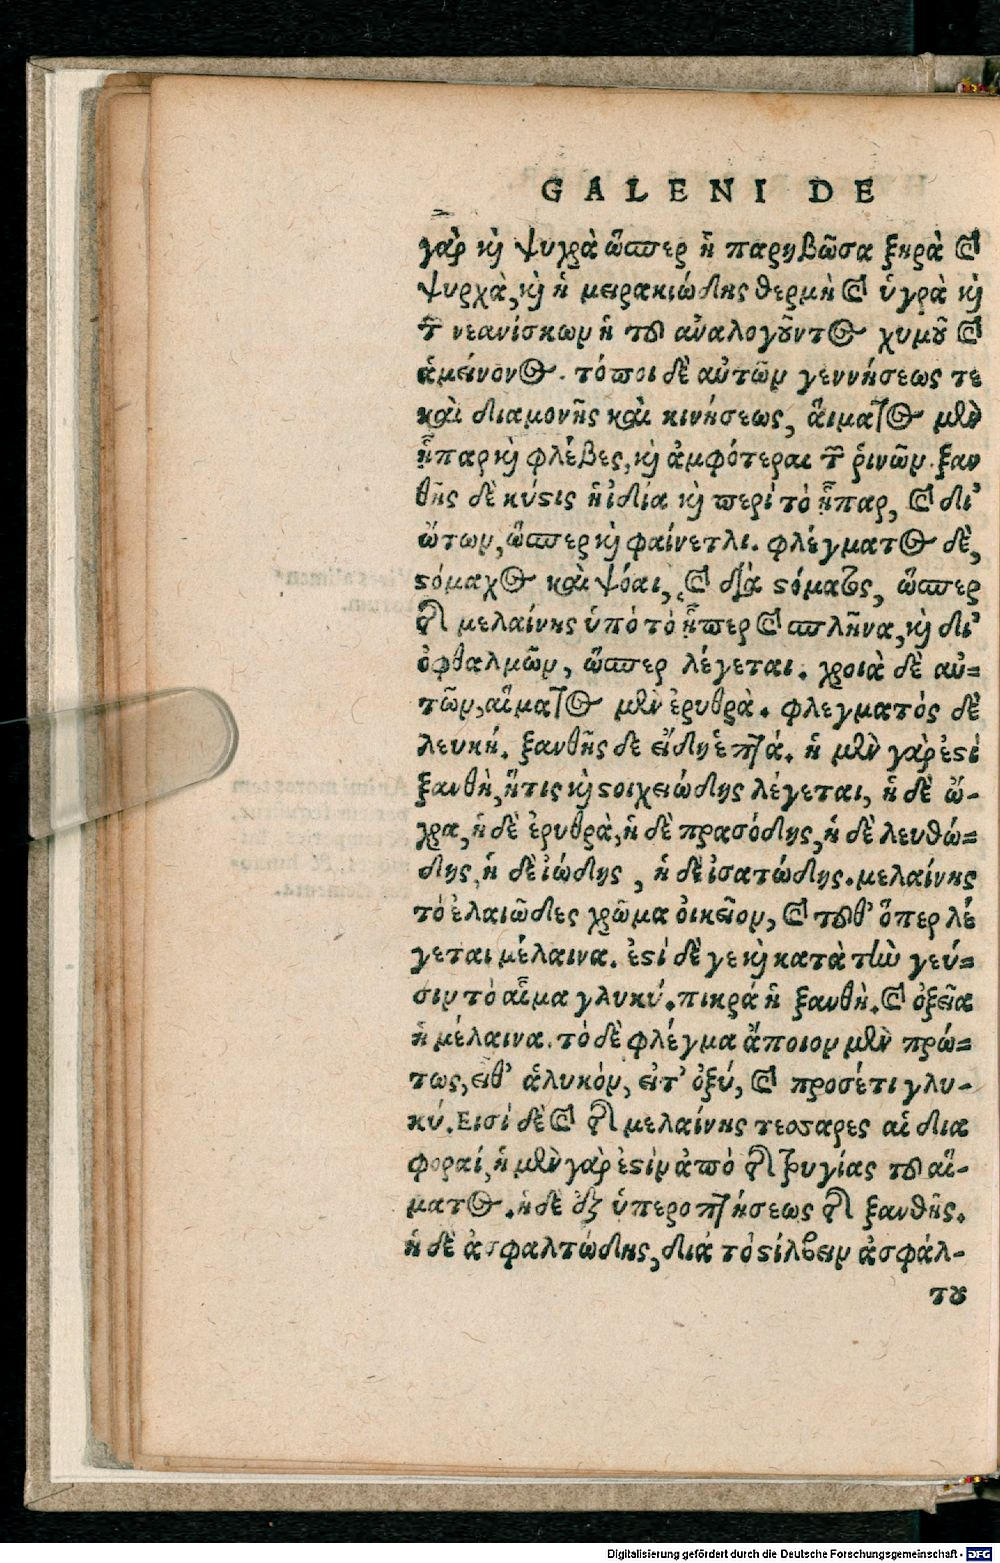 GALENI DE
γὰρ κỳ ψυχρὰ ὥσπερ ἡ παρηβῶσα ξηρὰ καὶ
ψυρχὰ, κỳ ἡ μειρακιώδης θερμὴ καὶ ὑγρὰ κỳ
τῶν νεανίσκων ἡ τοῦ ἀναλογοῦντος χυμοῦ καὶ
ἀμείνονος. τόποι δὲ αὐτῶν γεννήσεως τε
καὶ διαμονῆς καὶ κινήσεως, ἅιματος μὲν
ἧπαρ κỳ φλέβες, κỳ ἀμφότεραι τῶν ῥινῶν. ξαν
θῆς δὲ κύστις ἡ ἰδία κỳ περί τὸ ἧπαρ, καὶ δι’
ὤτων, ὥσπερ κỳ φαίνεται. φλέγματος δὲ,
στόμαχος καὶ ψόαι, καὶ διὰ στόματος, ὥσπερ
τῆς μελαίνης ὑπό τὸ ἧπερ καὶ σπλῆνα, κỳ δι’
ὀφθαλμῶν, ὥσπερ λέγεται. χροιὰ δὲ αὐ=
τῶν, αἵματος μὲν ἐρυθρὰ. φλεγματὸς δὲ
λευκή. ξανθῆς δε εἴδη ἑπτά. ἡ μὲν γὰρ ἐστὶ
ξανθὴ, ἥτις κỳ στοιχειώδης λέγεται, ἡ δὲ ὤ-
χρα, ἡ δὲ ἐρυθρὰ, ἡ δὲ πρασόδης, ἡ δὲ λευθώ=
δης, ἡ δὲ ἰώδης, ἡ δὲ ἰσατώδης. μελαίνης
τὸ ἐλαιῶδες χρῶμα ὀικεῖον, καὶ τοῦθ’ ὅπερ λέ
γεται μέλαινα. ἐστὶ δὲ γε κỳ κατὰ τὴν γεύ=
σιν τὸ αἷμα γλυκύ. πικρά ἡ ξανθὴ. καὶ ὀξεῖα
ἡ μέλαινα. τὸ δὲ φλέγμα ἄποιον μὲν πρώ=
τως, ειθ’ ἁλυκὸν, εἰτ’ ὀξύ, καὶ προσέτι γλυ-
κύ. Εισί δὲ καὶ τῆς μελαίνης τεσσαρες αἱ δια
φοραί, ἡ μὲν γὰρ ἐστὶν ἀπὸ τῆς τρυγίας τοῦ αἵ-
ματος. ἡ δὲ ἐξ ὑπεροπτήσεως τῆς ξανθῆς.
ἡ δὲ ἀσφαλτώδης, διά τὸ στίλβειν ἀσφάλ-
του
Digitalisierung gefördert durch die Deutsche Forschungsgemeinschaft - DFG